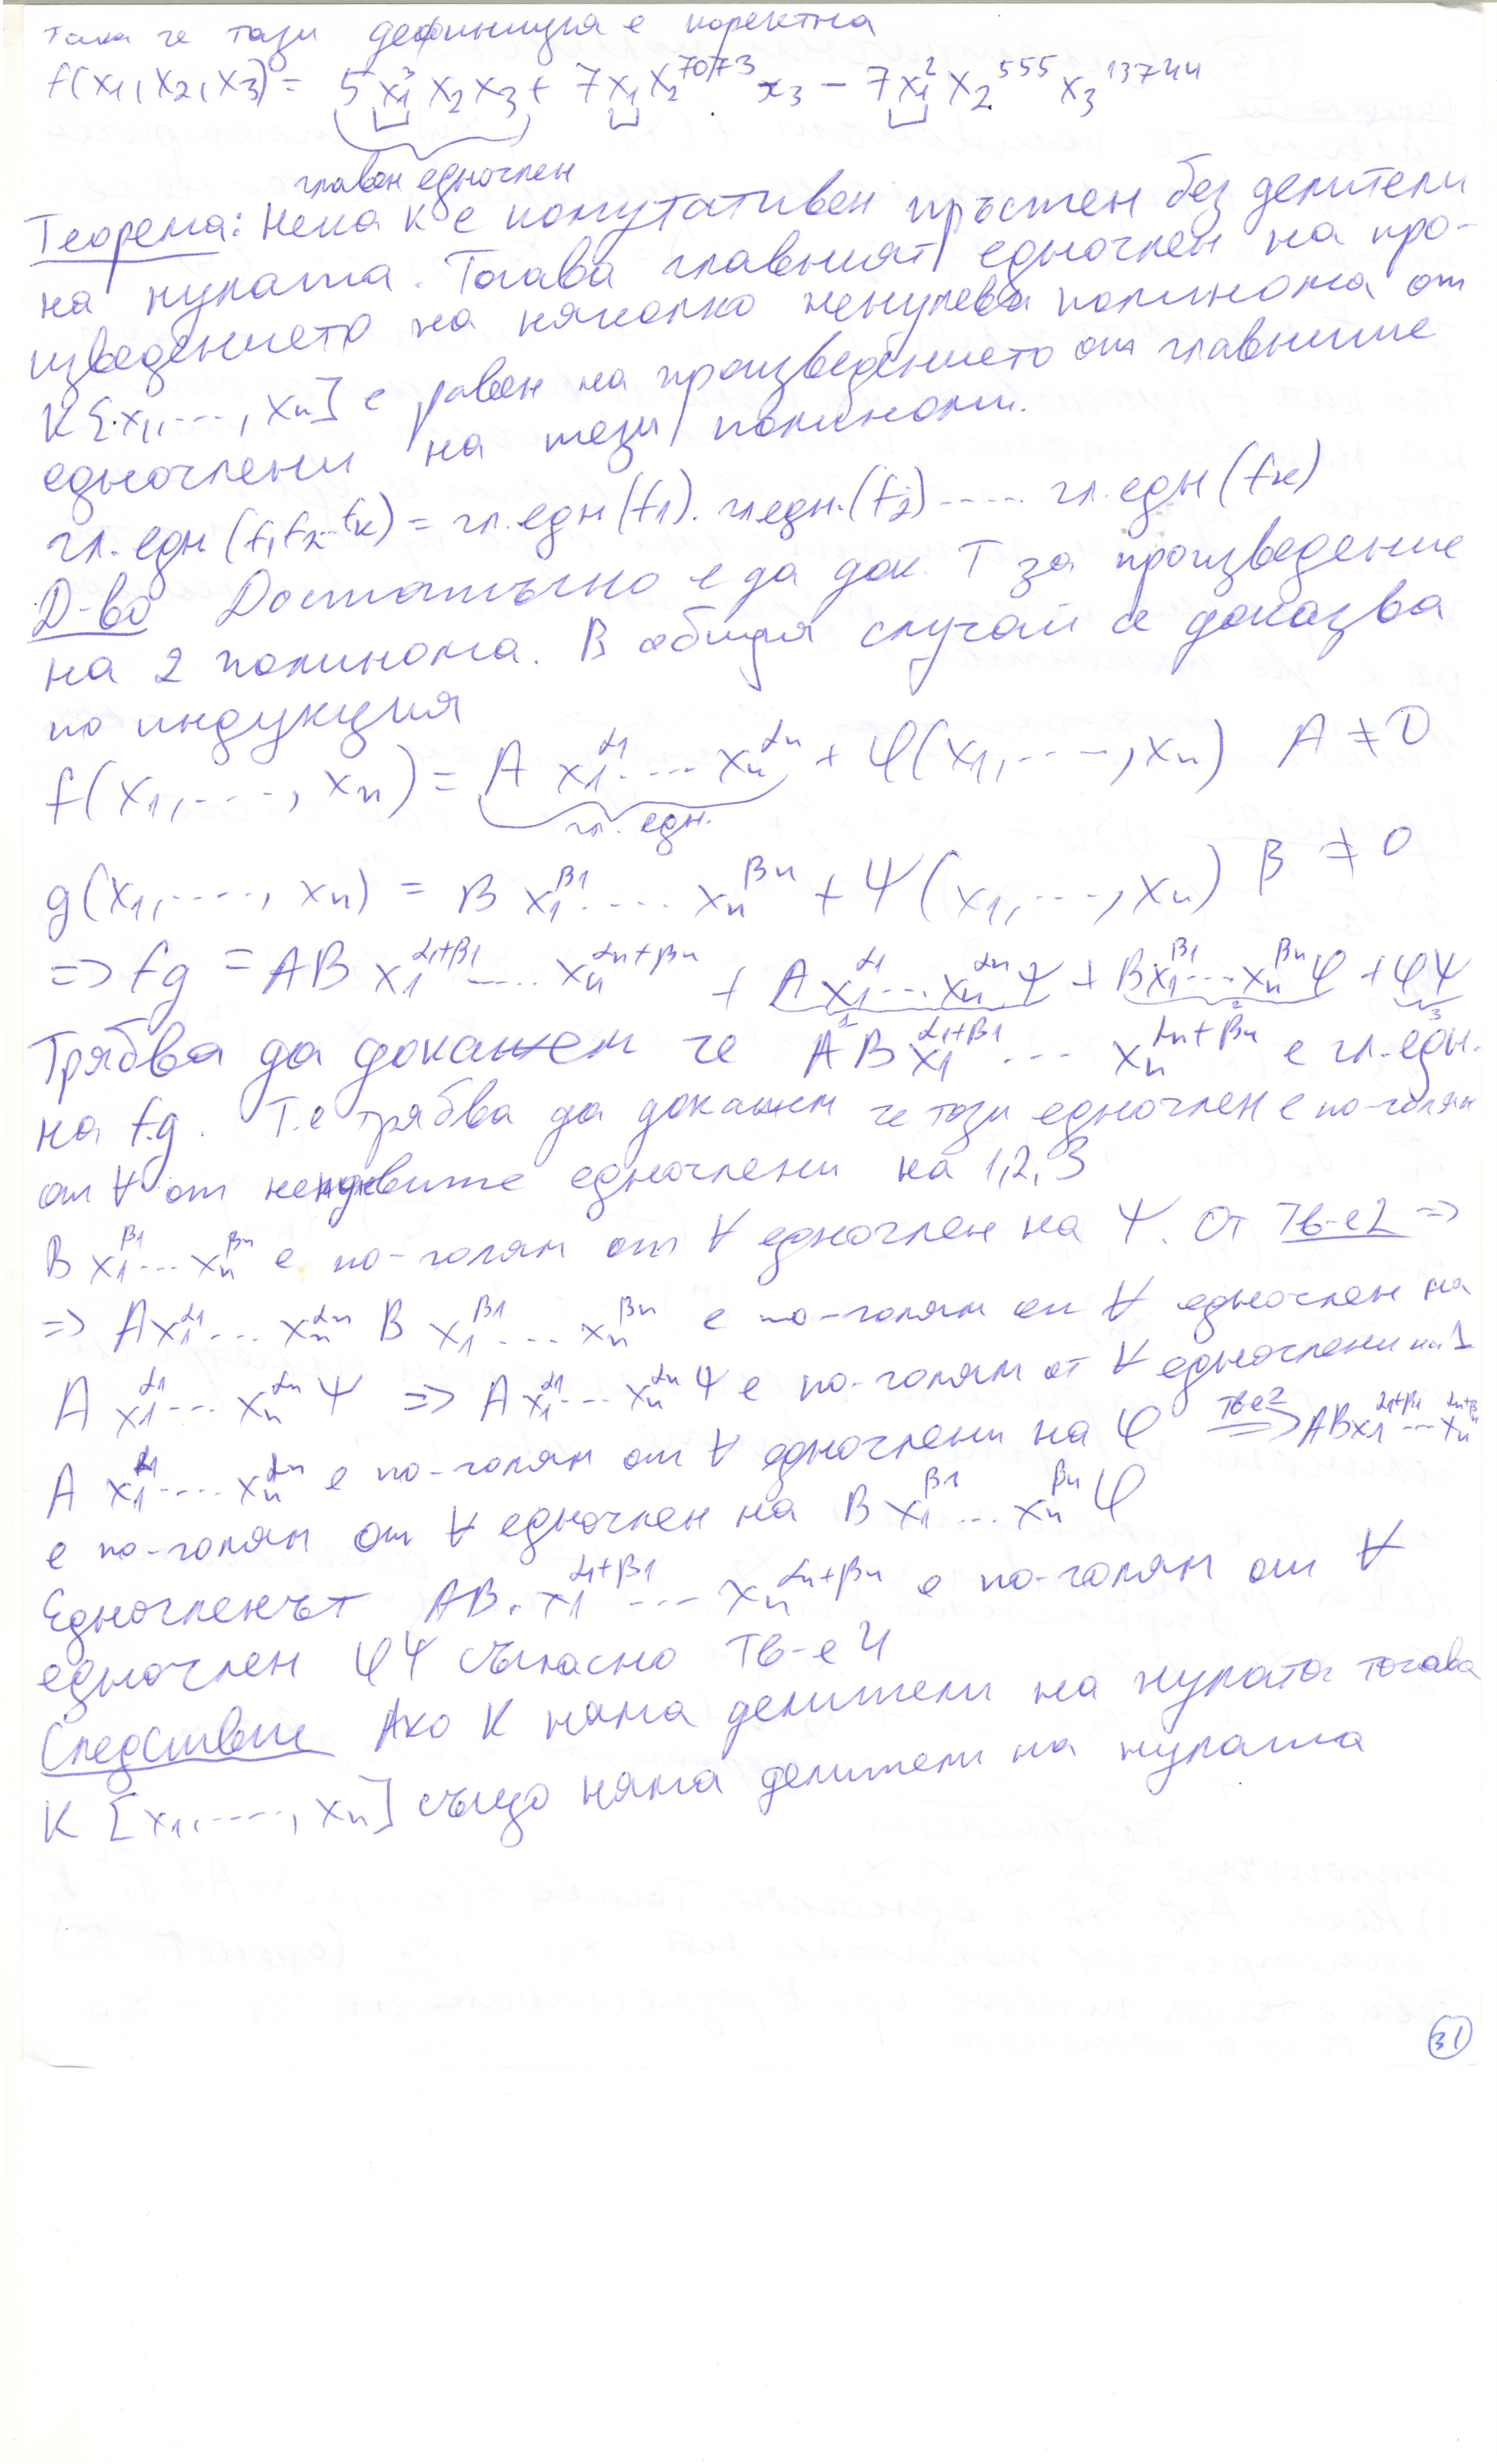 така че тази дефиниция е коректна
f(x₁, x₂, x₃) = 5x₁³x₂x₃ + 7x₁x₂⁷⁰⁷³x₃ − 7x₁²x₂⁵⁵⁵x₃¹³⁷⁴⁴
главен едночлен
Теорема: Нека K е комутативен пръстен без делители
на нулата. Тогава главният едночлен на про-
изведението на няколко ненулеви полинома от
K[x₁, ..., xₙ] е равен на произведението от главните
едночлени на тези полиноми.
гл. едн (f₁f₂...fₖ) = гл. едн (f₁). гл едн. (f₂) ..... гл. едн (fₖ)
Д-во Достатъчно е да док. Т за произведение
на 2 полинома. В общия случай се доказва
по индукция
f(x₁, ..., xₙ) = A x₁^α₁ .... xₙ^αₙ + φ(x₁, ..., xₙ) A ≠ 0
гл. едн.
g(x₁, ..., xₙ) = B x₁^β₁ .... xₙ^βₙ + ψ(x₁, ..., xₙ) B ≠ 0
=> fg = AB x₁^α₁+β₁ .... xₙ^αₙ+βₙ + A x₁^α₁ ... xₙ^αₙ ψ + B x₁^β₁ ... xₙ^βₙ φ + φψ
1 2 3
Трябва да докажем че AB x₁^α₁+β₁ ... xₙ^αₙ+βₙ е гл. едн.
на f.g. Т.е трябва да докажем че този едночлен е по-голям
от ∀ от ненулевите едночлени на 1,2,3
B x₁^β₁ ... xₙ^βₙ е по-голям от ∀ едночлен на ψ. От Тв-е2 =>
=> A x₁^α₁ ... xₙ^αₙ B x₁^β₁ ... xₙ^βₙ е по-голям от ∀ едночлен на
A x₁^α₁ ... xₙ^αₙ ψ => A x₁^α₁ ... xₙ^αₙ ψ е по-голям от ∀ едночлени на 1
A x₁^α₁ .... xₙ^αₙ е по-голям от ∀ едночлени на φ =Тв-е2=> AB x₁^α₁+β₁ ... xₙ^αₙ+βₙ
е по-голям от ∀ едночлен на B x₁^β₁ ... xₙ^βₙ φ
Едночленът AB. x₁^α₁+β₁ ... xₙ^αₙ+βₙ е по-голям от ∀
едночлен φψ съгласно Тв-е 4
Следствие Ако K няма делители на нулата тогава
K [x₁, ...., xₙ] също няма делители на нулата
31